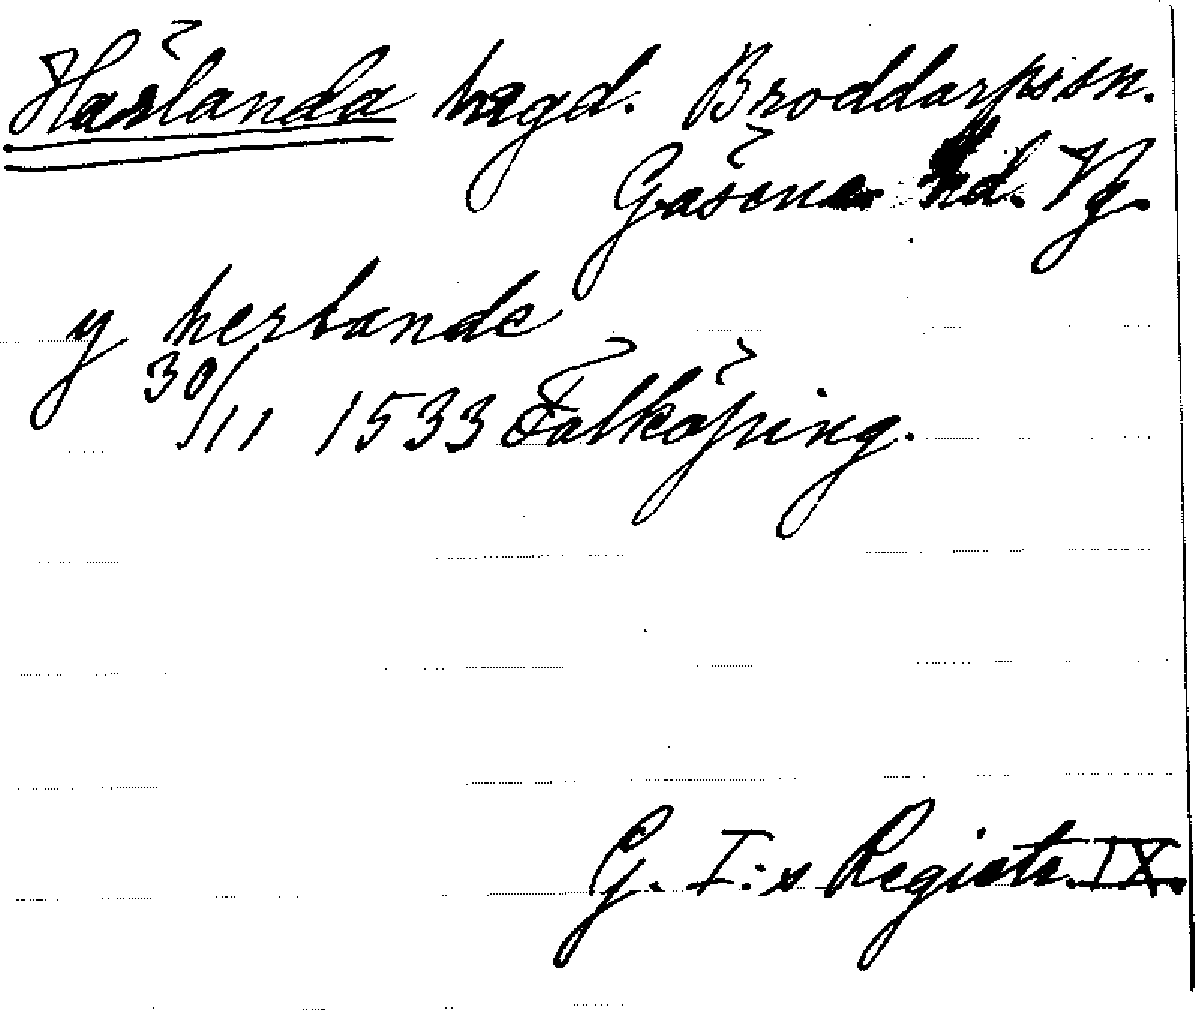 Härlanda hrgd. Broddarpssn.
Gäsene hd. Vg.
y herlande
30/11 1533 Falköping.
G. I:s Registr. IX.